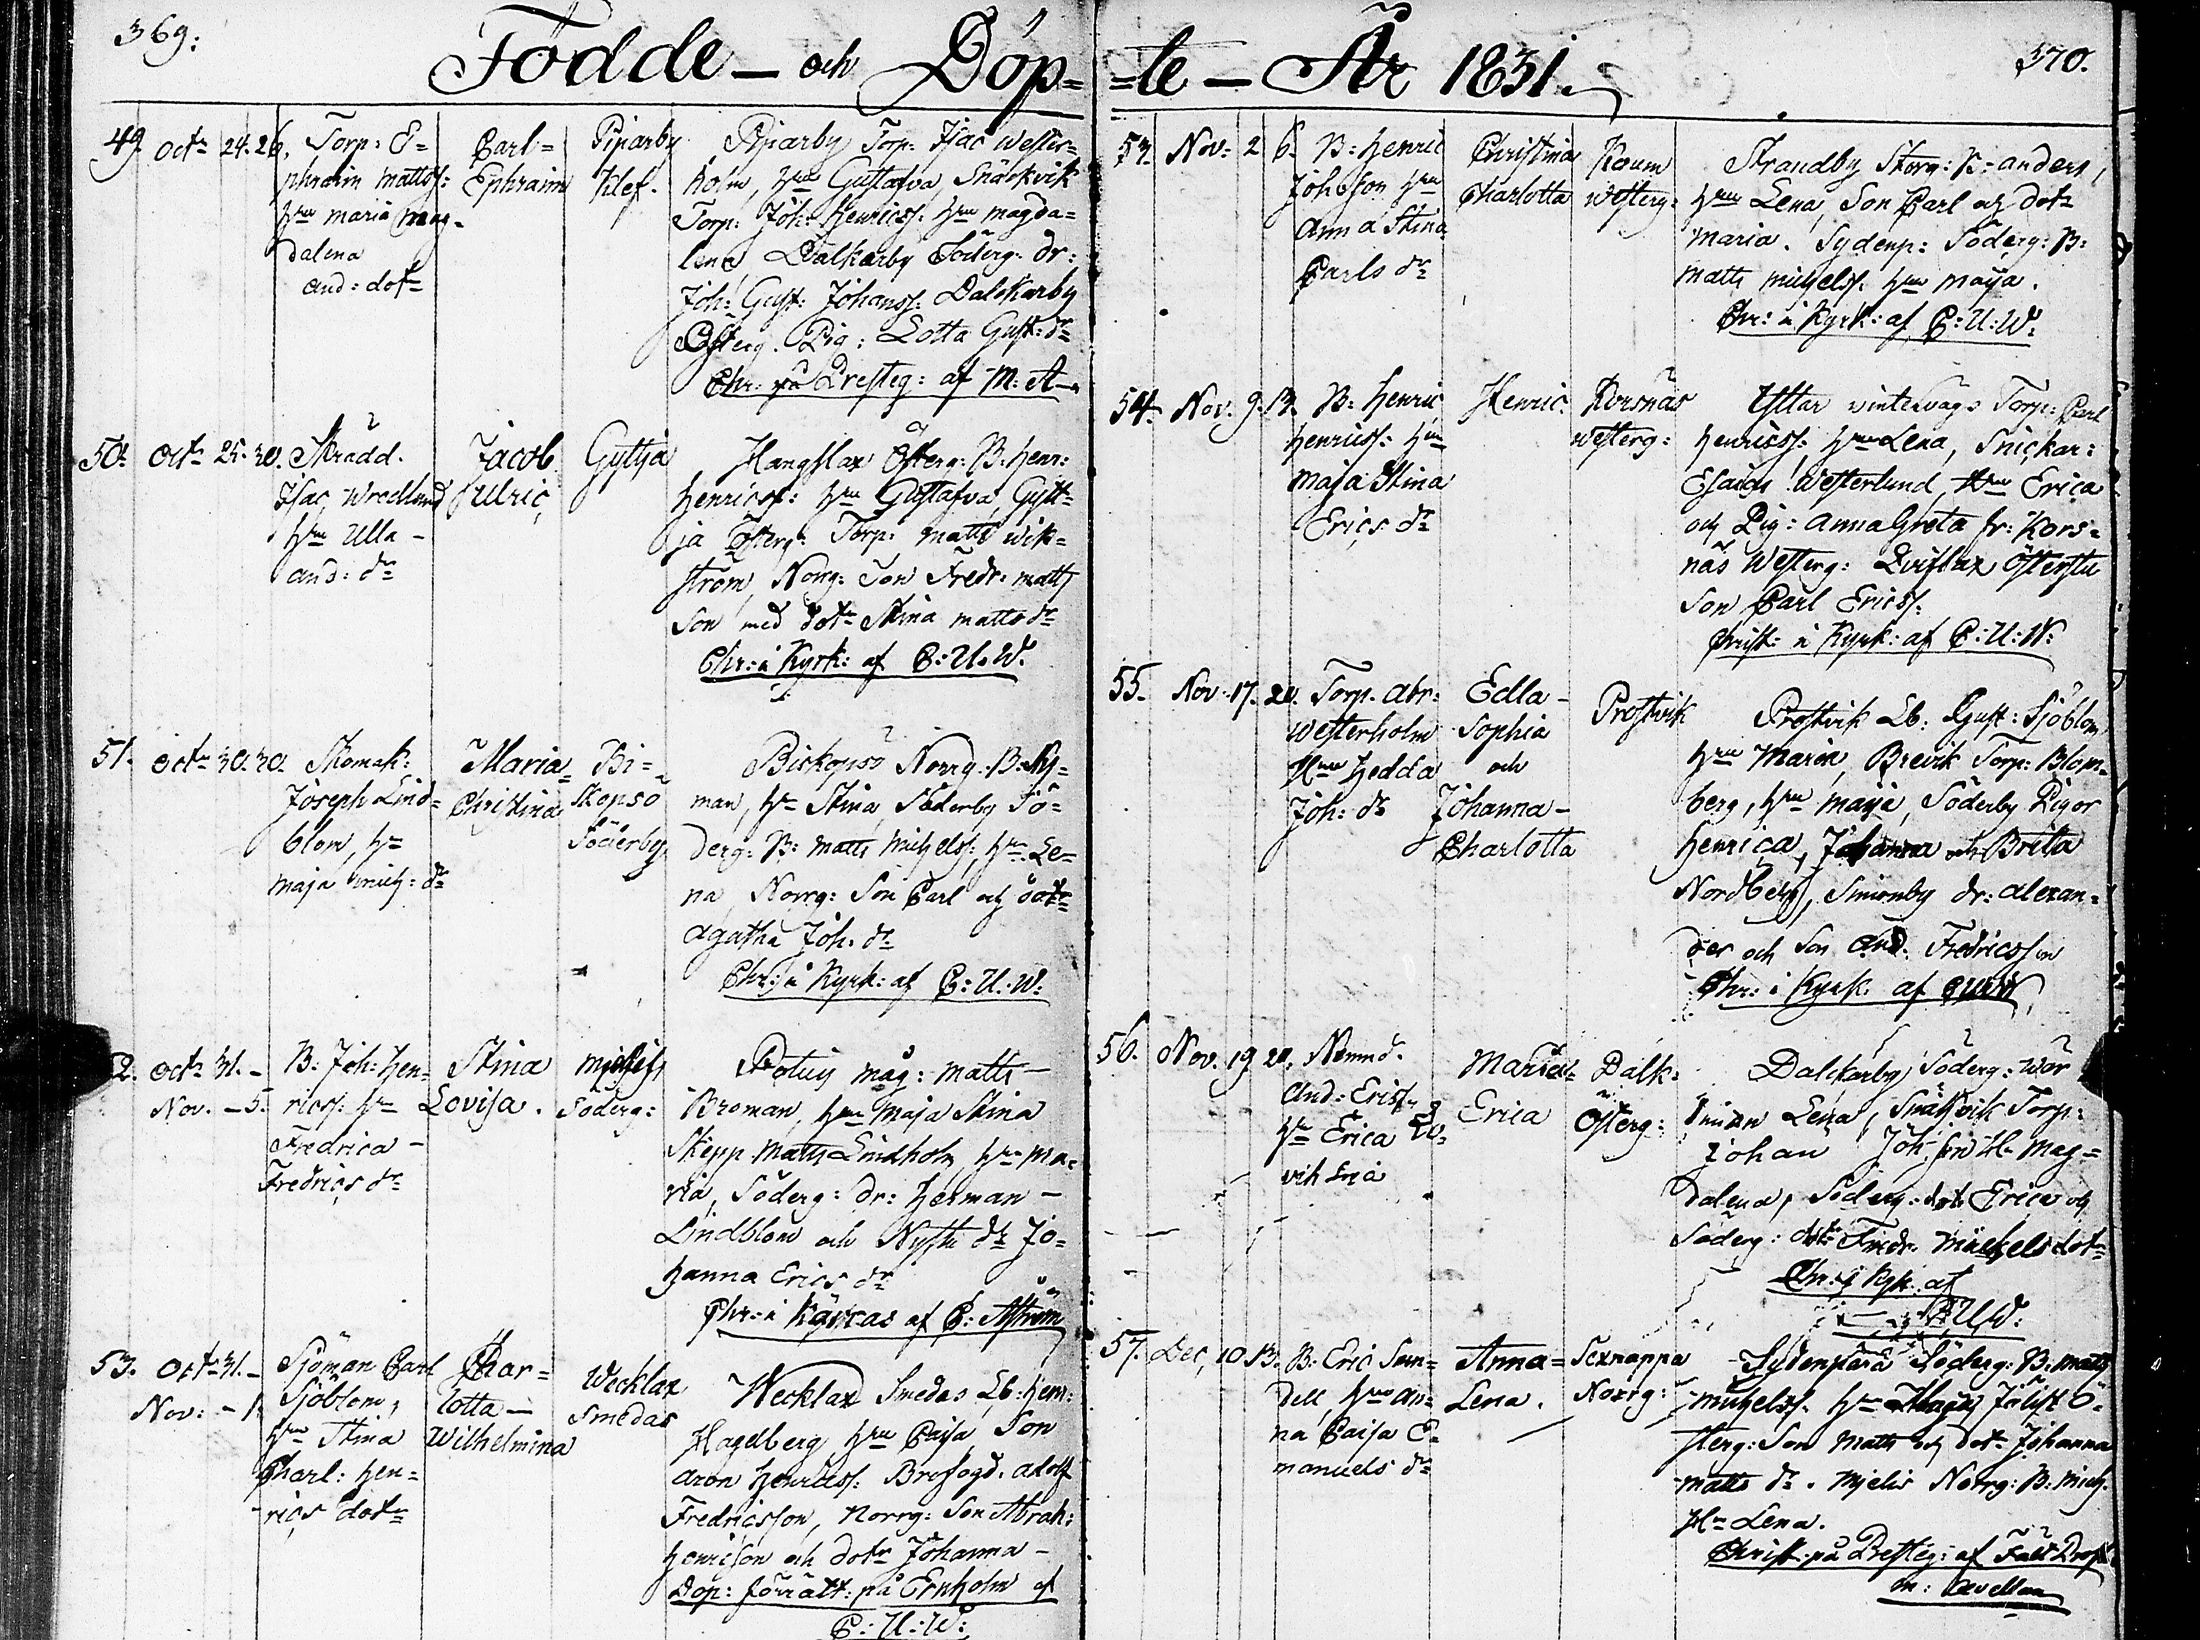 369:
Födde - och Döp=
49. Octr 24. 26. Torp: E=
phraim Mattss:
hru Maria Mag-
dalena
And: dotr
Carl=
Ephraim
Piparby
Klef.
Piparby Torp: Isac Wester=
holm, hru Gustafva, Snäckvik
Torp: Joh: Henricss: hru Magda=
lena, Dalkarby Söderg: dr:
Joh: Gust: Johanss: Dalckarby
Österg. Pig: Lotta Gust: dr
Chr: på Presteg: af M: A-
50. Octr 25. 30. Skrädd.
Isac Wredlund
hru Ulla -
And: dr
Jacob
Ulric
Gyttja
Hangslax Österg: B: Henr:
Henricss: hru Gustafva, Gytt=
ja Österg: Torp: Matts Wik=
ström, Norrg: Son Fredr: Matts
Son med dotr Stina Matts dr
Chr: i Kyrk: af C: U. W.
51. Octr 30. 30. Skomak:
Joseph Lind=
blom, hr
Maja Mich: dr
Maria=
Christina
Bi=
skopsö
Söderby
Biskopsö Norrg. B: Ny=
man, hr Stina, Söderby Sö=
derg: B: Matts Michelss: hr: Le=
na Norrg: Son Carl och dotr
Agatha Joh. dr
Chr: i Kyrk: af C: U. W:
2. Octr 31. -
Nov. - 5.
B: Joh: Hen=
ricss: hr
Fredrica -
Fredrics dr
Stina
Lovisa.
Söderg:
måg: Matts -
Broman, hru Maja Stina
Skepp Matts Lindholm, hru Ma=
ria, Söderg: dr: Herman -
Lindblom och dr Jo=
hanna Erics dr
Chr: i af C: Aström
53. Octr 31. -
Nov: - 1.
Sjöman Carl
Sjöblom,
hru Stina
Charl: Hen=
rics dotr
Char=
lotta -
Wilhelmina
Wecklax
Smedas
Wecklax Smedas Lb: Henr:
Hagelberg hru Caisa Son
Aron Henricss: Brofogd. Adolf
Fredricsson, Norrg: Son Abrah:
Henricson och dotr Johanna -
Döp: förrätt: på Ernholm af
C: U: W:
=te - År 1831.
370.
53. Nov: 2 6. B: Henric
Johsson hru
Anna Stina
Carls dr
Christina
Charlotta
Kaum
Westerg:
Strandby Storg: B: Anders,
hru Lena, Son Carl och dotr
Maria. Sydenp: Söderg: B:
Matts Michelss: hru Maija.
Chr: i Kyrk: af C: U: W:
54. Nov. 9. 13. B: Henric
Henricss: hru
Maja Stina
Erics dr
Henric.
Korsnäs
Westerg:
Yttar Torp: Carl
Henricss: hru Lena, Snickar:
Esaias Westerlund, hru Erica
och Pig: Anna Greta fr: Kors=
näs Westerg:
Son Carl Ericss.
Christ: i Kyrk: af C: U: W:
55. Nov. 17. 20. Torp. Abr:
Westerholm
hru Hedda
Joh: dr
Edla -
Sophia
och
Johanna -
Charlotta
Prostvik
Prostvik Lb: Gust: Sjöblom,
hru Maria, Brevik Torp: Blom=
berg, hru Maija, Söderby Pigor
Henrica, Johanna och Brita
Nordberg, Simonby dr: Alexan=
der och Son And. Fredricsson
Chr: i Kyrk. af CUW
56. Nov. 19 20. Nämnd.
And: Ericss
hr Erica
Maria=
Erica
Dalk:
Österg:
Dalckarby Söderg:
Lena, Torp:
Johan Joh: son H: Mag=
dalena, Söderg: dotr Erica och
Söderg: dotr Fredr. Michels dotr
Chr: i Kyk: af
C: U: W:
57. Dec, 10 13. B: Eric Sun=
dell, hru An=
na Caisa E=
manuels dr
Anna=
Lena.
Sexnappa
Norrg:
Sydenperä Söderg: B: Matts
Michelss: hr Maija Ö=
sterg: Son Matts och dotr Johanna
Matts dr. Norrg: B: Mich.
Hr Lena.
Christ: på Presteg: af Fält Prost
M: Avellan